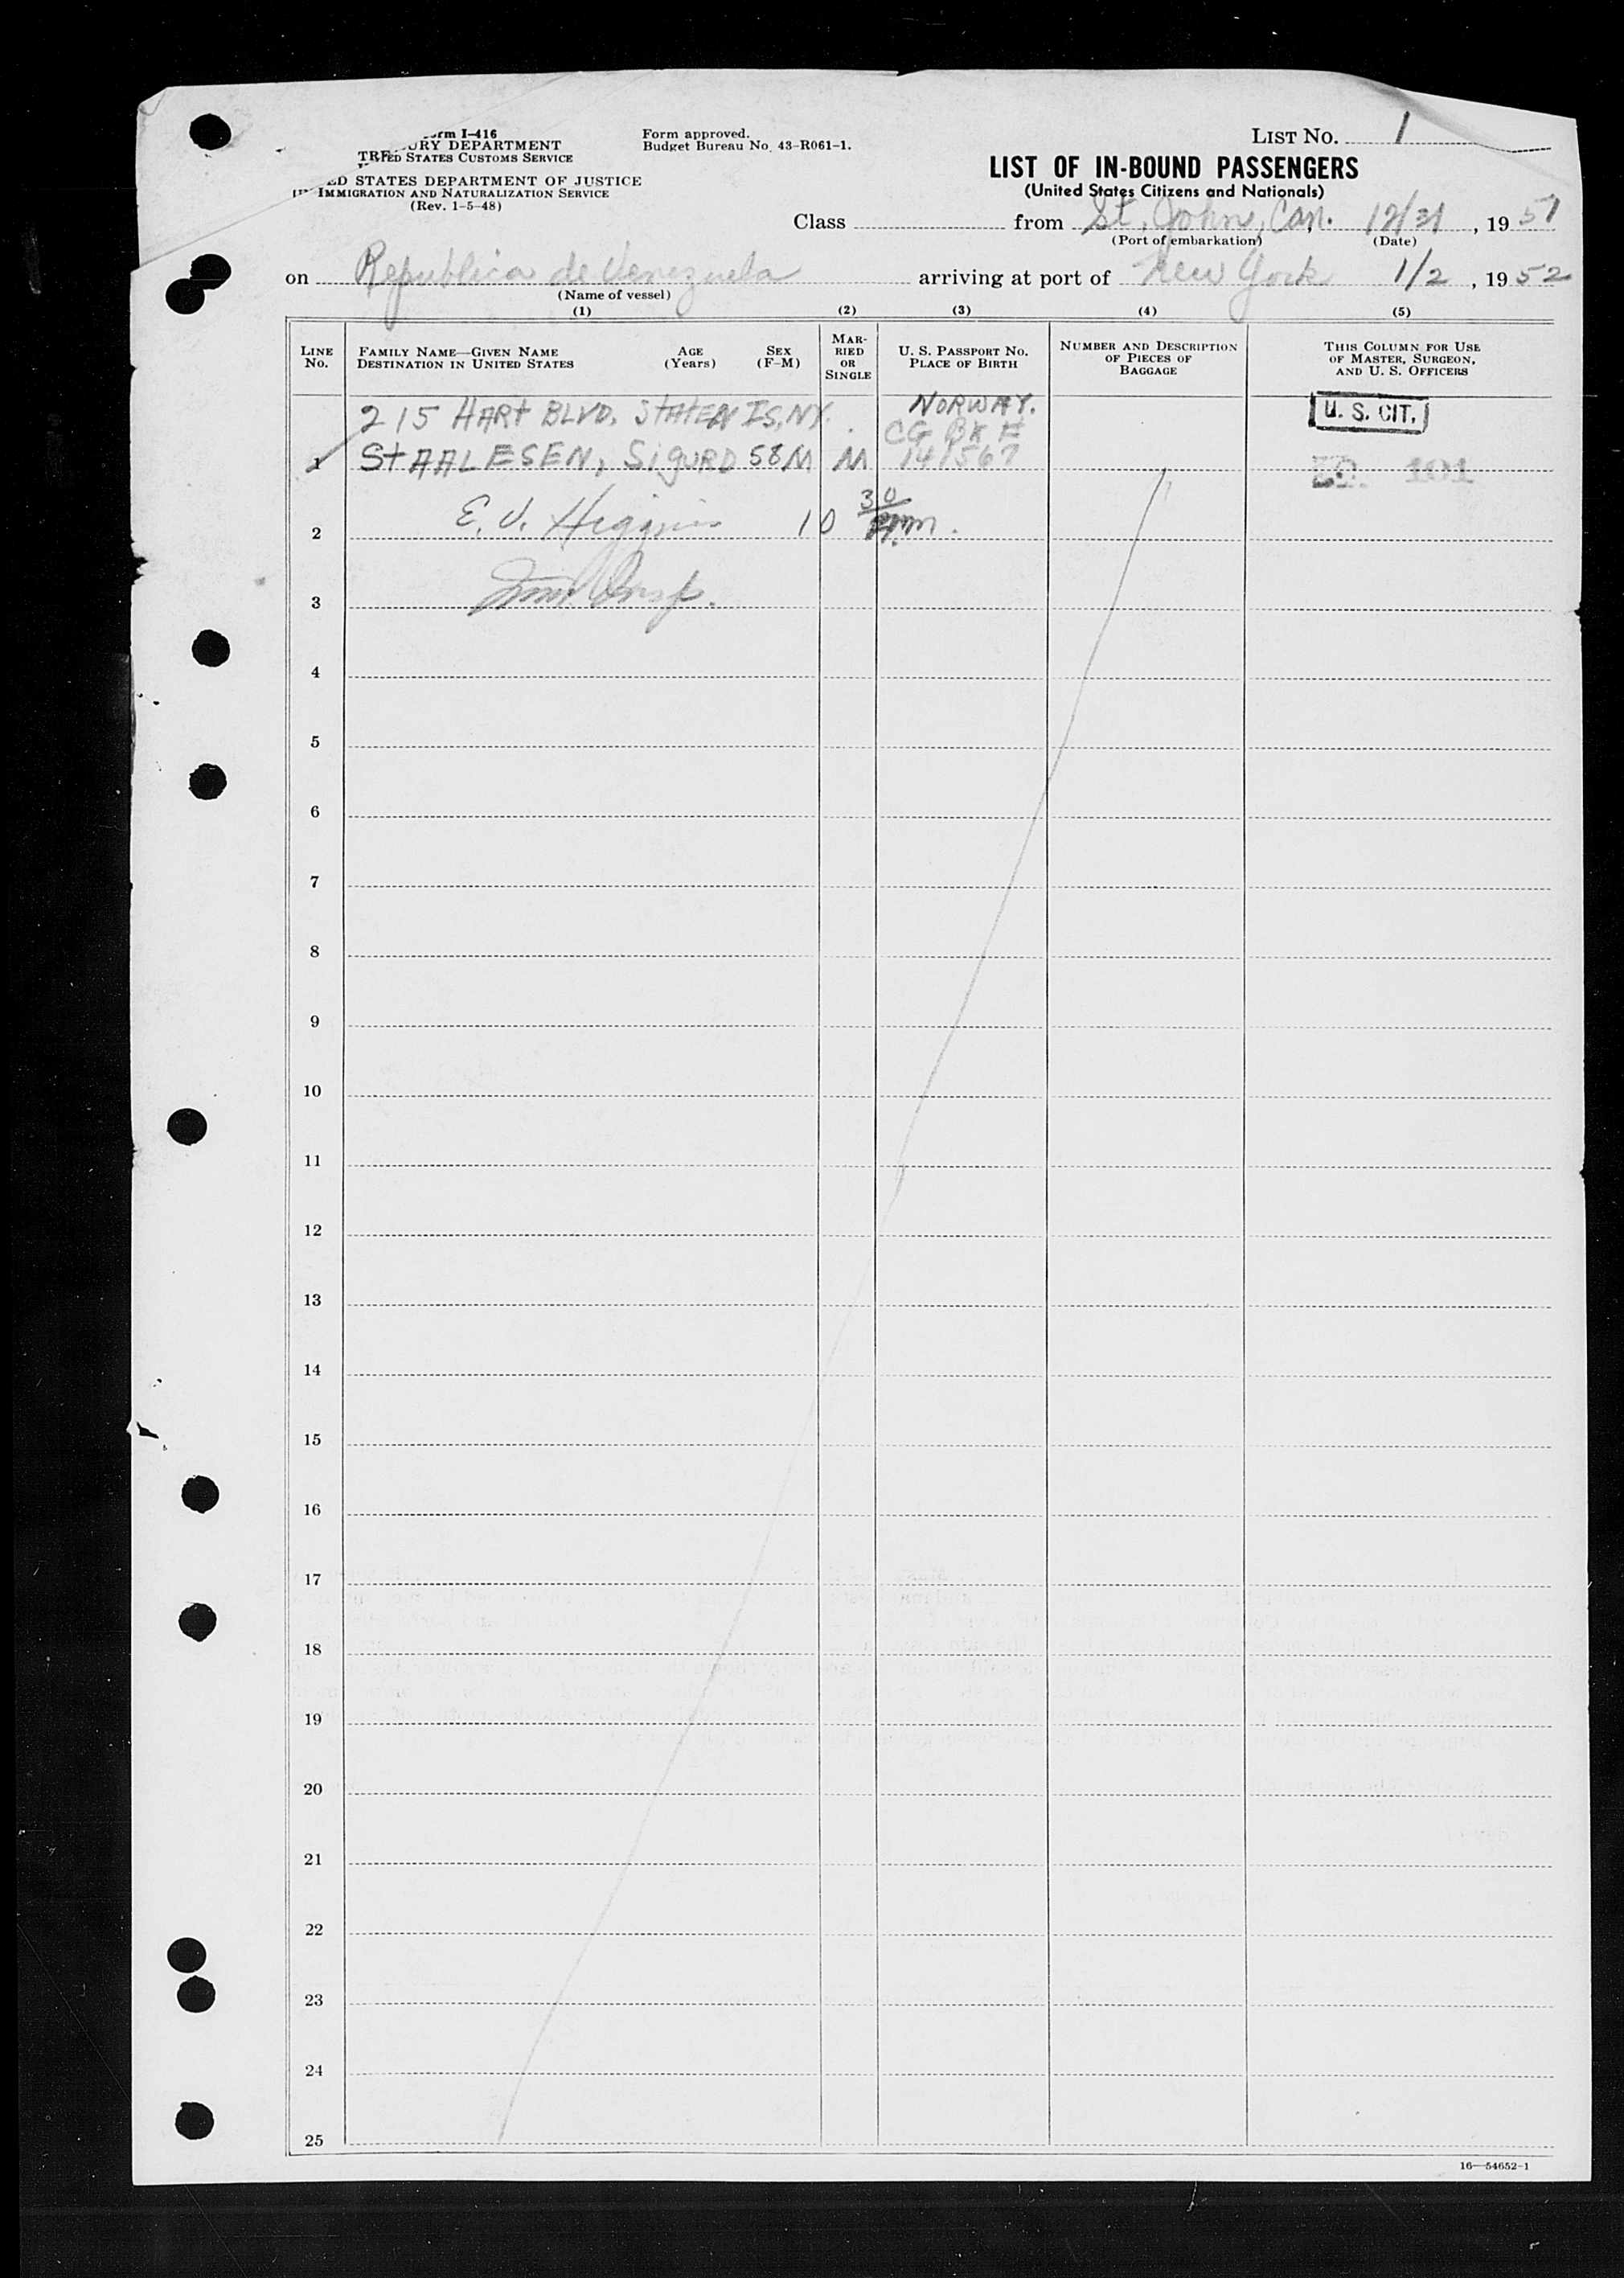 Form I-416
TREASURY DEPARTMENT
UNITED STATES CUSTOMS SERVICE
UNITED STATES DEPARTMENT OF JUSTICE
IMMIGRATION AND NATURALIZATION SERVICE
(Rev. 1-5-48)
Form approved.
Budget Bureau No. 43-R061-1.
LIST No. 1
LIST OF IN-BOUND PASSENGERS
(United States Citizens and Nationals)
Class from St. John, Can. 12/31, 1951
(Port of embarkation) (Date)
on Republica de Venezuela arriving at port of New York 1/2, 1952
(Name of vessel)
(1) (2) (3) (4) (5)
LINE No.
FAMILY NAME—GIVEN NAME AGE (Years) SEX (F-M)
DESTINATION IN UNITED STATES
MARRIED OR SINGLE
U. S. PASSPORT NO.
PLACE OF BIRTH
NUMBER AND DESCRIPTION OF PIECES OF BAGGAGE
THIS COLUMN FOR USE OF MASTER, SURGEON, AND U. S. OFFICERS
215 HART BLVD. STATEN IS, NY. NORWAY. U. S. CIT.
CG BK #
1 STAALESEN, SIGURD 58 M M 141567 101
2 E. V. Higgins 10 30
3 Imm. Insp.
4
5
6
7
8
9
10
11
12
13
14
15
16
17
18
19
20
21
22
23
24
25
16—54652-1